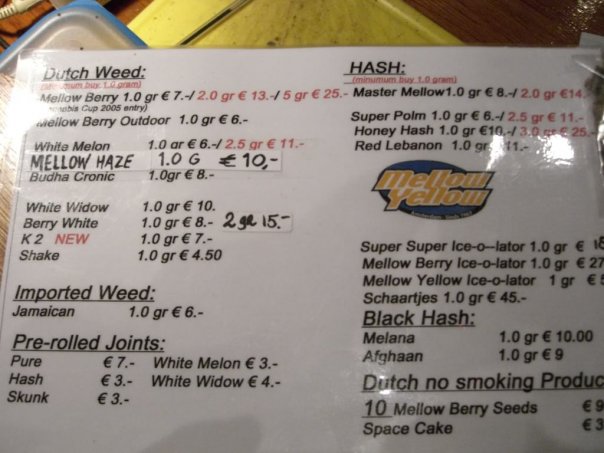 Dutch Weed:
(minimum buy 1.0 gram)
Mellow Berry 1.0 gr € 7.-/ 2.0 gr € 13.-/ 5 gr € 25.-
Cup 2005 entry)
Mellow Berry Outdoor 1.0 gr € 6.-
White Melon 1.0 gr € 6.-/ 2.5 gr € 11.-
MELLOW HAZE 1.0 G € 10,-
Budha Cronic 1.0gr € 8.-
White Widow 1.0 gr € 10.
Berry White 1.0 gr € 8.- 2 gr 15.-
K 2 NEW 1.0 gr € 7.-
Shake 1.0 gr € 4.50
Imported Weed:
Jamaican 1.0 gr € 6.-
Pre-rolled Joints:
Pure € 7.- White Melon € 3.-
Hash € 3.- White Widow € 4.-
Skunk € 3.-
HASH:
(minumum buy 1.0 gram)
Master Mellow 1.0 gr € 8.-/ 2.0 gr €14.
Super Polm 1.0 gr € 6.-/ 2.5 gr € 11.-
Honey Hash 1.0 gr €10.-/ 3.0 gr € 25.-
Red Lebanon 1.0 gr €11.-
Mellow
Yellow
Super Super Ice-o--lator 1.0 gr €
Mellow Berry Ice-o-lator 1.0 gr € 27
Mellow Yellow Ice-o-lator 1 gr €
Schaartjes 1.0 gr € 45.-
Black Hash:
Melana 1.0 gr € 10.00
Afghaan 1.0 gr € 9
Dutch no smoking Produc
10 Mellow Berry Seeds € 9
Space Cake € 3